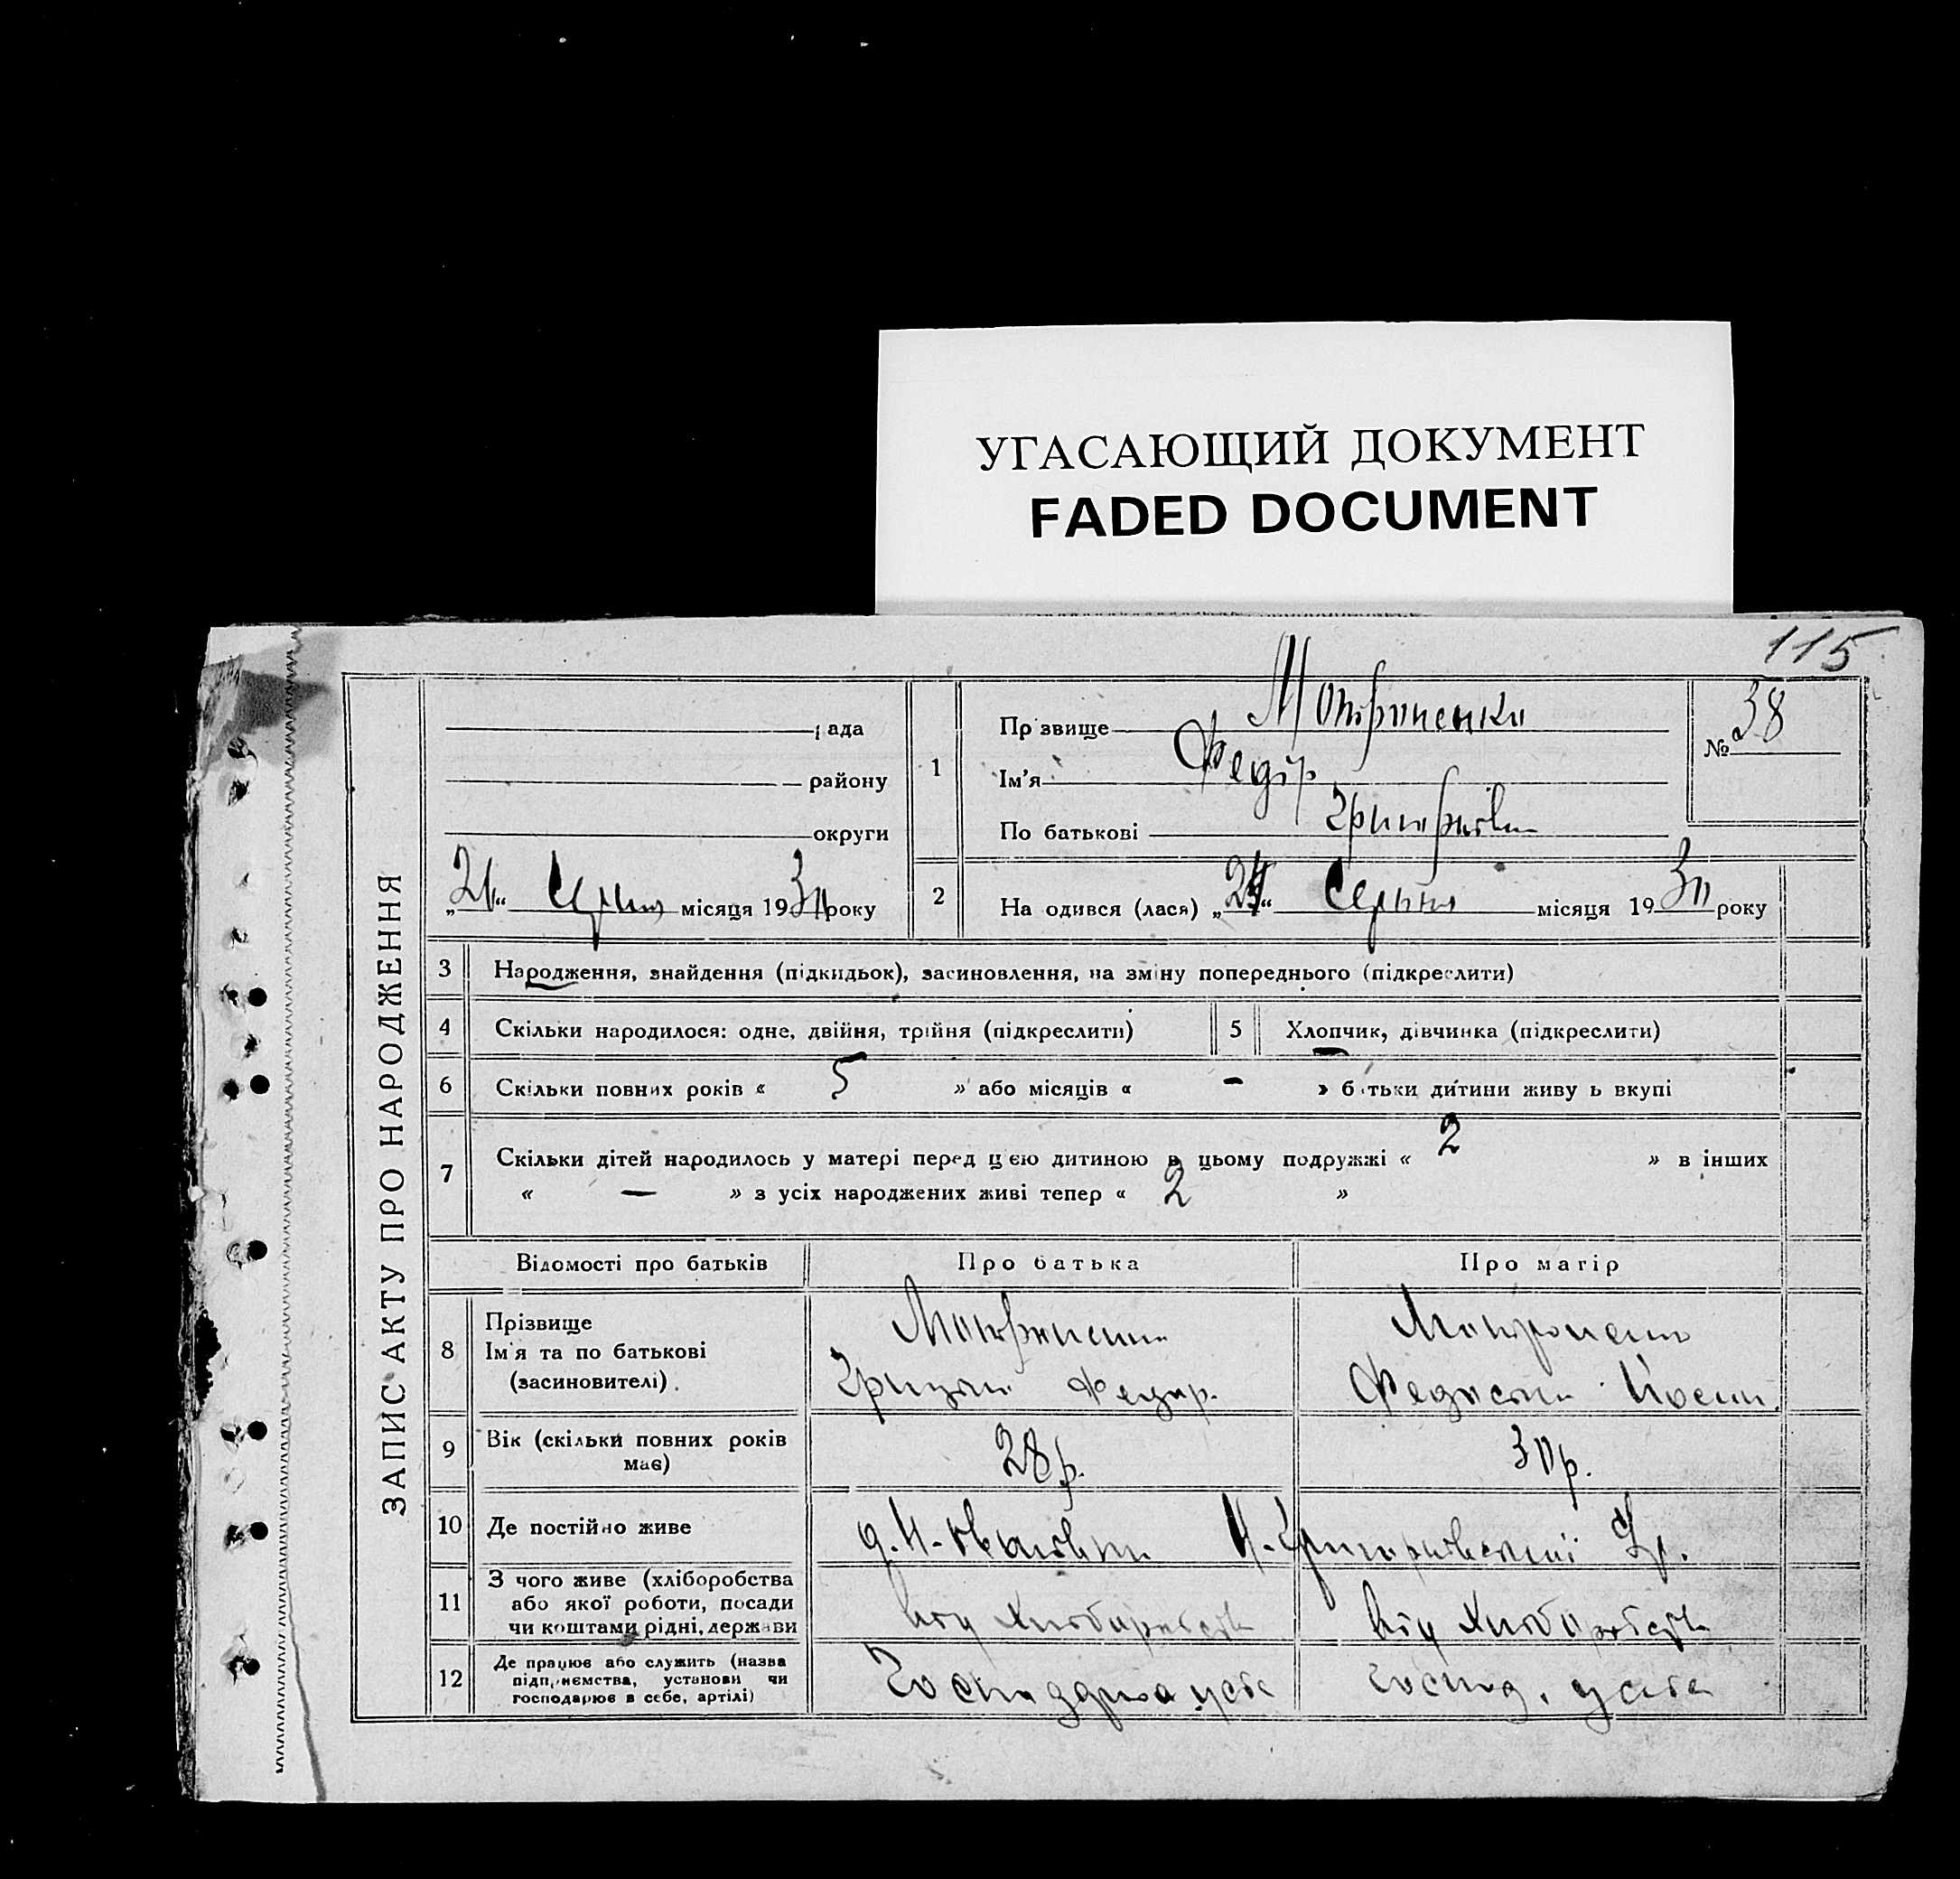 УГАСАЮЩИЙ ДОКУМЕНТ
FADED DOCUMENT
115
ЗАПИС АКТУ ПРО НАРОДЖЕННЯ
рада
району
округи
„21“ Серпня місяця 1930 року
1
Прізвище Мотроненко
Ім'я Федір
По батькові Григорієв
№ 38
2
На одився (лася) „ “ Серпня місяця 1930 року
3 Народження, знайдення (підкидьок), засиновлення, на зміну попереднього (підкреслити)
4 Скільки народилося: одне, двійня, трійня (підкреслити)
5 Хлопчик, дівчинка (підкреслити)
6 Скільки повних років « 5 » або місяців « – » батьки дитини живу ь вкупі
7 Скільки дітей народилось у матері перед цією дитиною в цьому подружжі « 2 » в інших
« — » з усіх народжених живі тепер « 2 »
Відомості про батьків
Про батька
Про матір
8
Прізвище
Ім'я та по батькові
(засиновителі)
Мотроненко
Федор.
Мотроненко
Йосип.
9 Вік (скільки повних років має)
28 р.
30 р.
10 Де постійно живе
11 З чого живе (хліборобства
або якої роботи, посади
чи коштами рідні, держави
від хліборобств
від хліборобств
12 Де працює або служить (назва
підприємства, установи чи
господарює в себе, артілі)
господ. у себе